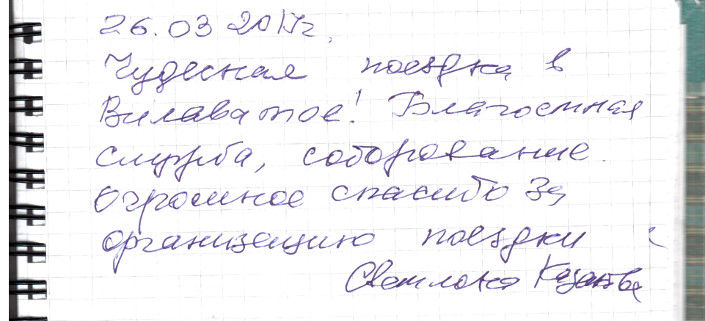 26.03 2017г.
Чудесная поездка в
Вилаватое! Благостная
служба, соборование.
Огромное спасибо за
организацию поездки
Светлана